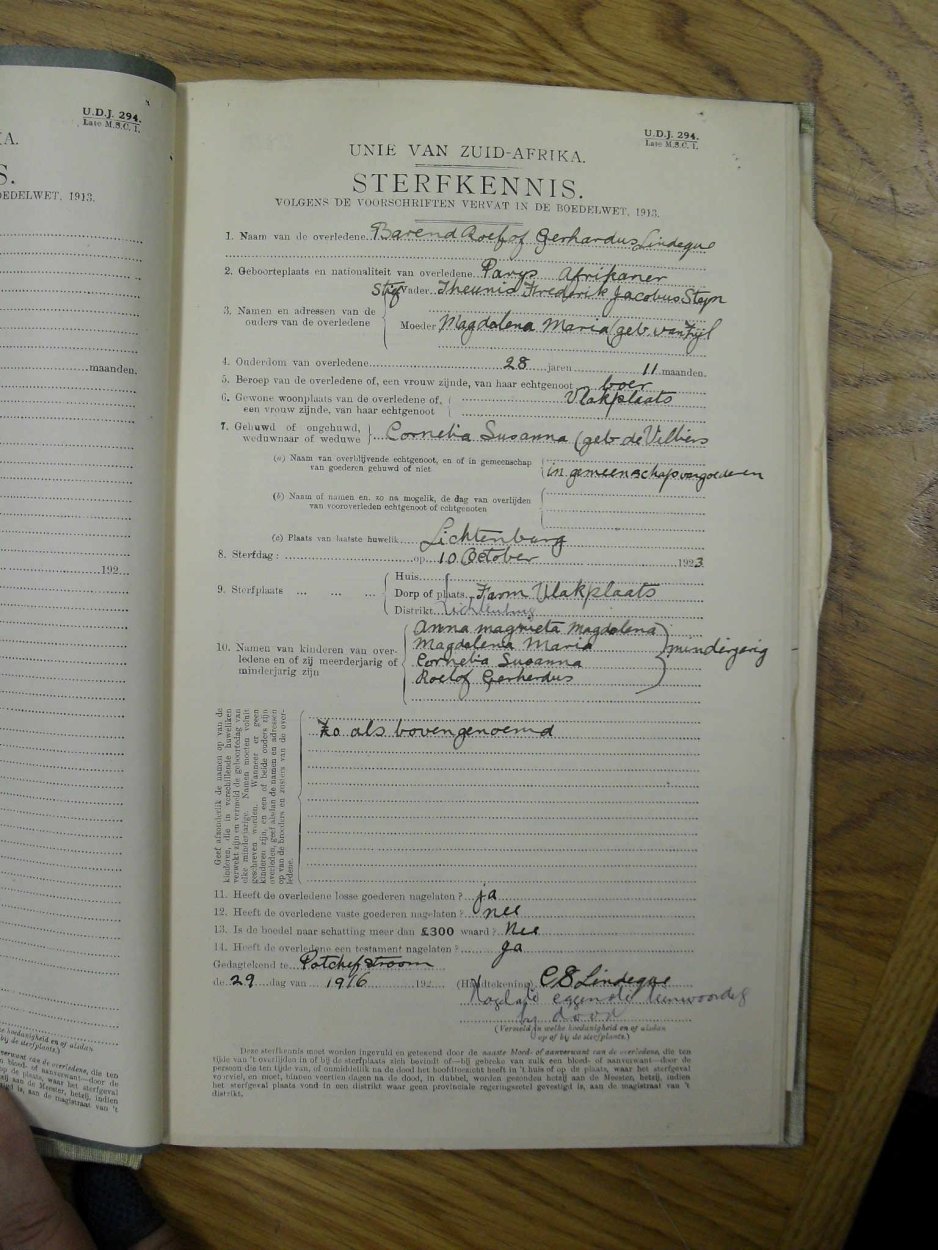 U.D.J. 294.
Late M.S.C. 1.
A.
S.
OEDELWET, 1913.
maanden.
192
U.D.J. 294.
Late M.S.C. 1.
UNIE VAN ZUID-AFRIKA.
STERFKENNIS.
VOLGENS DE VOORSCHRIFTEN VERVAT IN DE BOEDELWET, 1913.
1. Naam van de overledene Barend Roelof Gerhardus Lindeque
2. Geboorteplaats en nationaliteit van overledene Parys Afrikaner
3. Namen en adressen van de ouders van de overledene
Stief Vader Theunis Frederik Jacobus Steyn
Moeder Magdalena Maria (geb. van Zijl
4. Ouderdom van overledene 28 jaren 11 maanden.
5. Beroep van de overledene of, een vrouw zijnde, van haar echtgenoot boer
6. Gewone woonplaats van de overledene of, een vrouw zijnde, van haar echtgenoot Vlakplaats
7. Gehuwd of ongehuwd, weduwnaar of weduwe Cornelia Susanna (geb de Villiers
(a) Naam van overblijvende echtgenoot, en of in gemeenschap van goederen gehuwd of niet in gemeenschap van goederen
(b) Naam of namen en, zo na mogelik, de dag van overlijden van vooroverleden echtgenoot of echtgenoten
(c) Plaats van laatste huwelik Lichtenburg
8. Sterfdag: op 10 October 1923
9. Sterfplaats ... ... ...
Huis
Dorp of plaats Farm Vlakplaats
Distrikt Lichtenburg
10. Namen van kinderen van overledene en of zij meerderjarig of minderjarig zijn
Anna Magrieta Magdalena
Magdalena Maria
Cornelia Susanna
Roelof Gerherdus
minderjerig
Geef afzonderlik de namen op van de kinderen, die in verschillende huweliken verwekt zijn en vermeld de geboortedag van elke minderjarige. Namen moeten voluit geschreven worden. Wanneer er geen kinderen zijn, en een of beide ouders zijn overleden, geef alsdan de namen en adressen op van de broeders en zusters van de overledene.
Zo als bovengenoemd
11. Heeft de overledene losse goederen nagelaten? ja
12. Heeft de overledene vaste goederen nagelaten? nee
13. Is de boedel naar schatting meer dan £300 waard? Nee
14. Heeft de overledene een testament nagelaten? ja
Gedagtekend te Potchefstroom
de 29 dag van 1926 192 (Handtekening) C S Lindeque
bij dood
(Vermeld in welke hoedanigheid en of alsdan op of bij de sterfplaats.)
Deze sterfkennis moet worden ingevuld en getekend door de naaste bloed- of aanverwant van de overledene, die ten
tijde van 't overlijden in of bij de sterfplaats zich bevindt of—bij gebreke van zulk een bloed- of aanverwant—door de
persoon die ten tijde van, of onmiddelik na de dood het hoofdtoezicht heeft in 't huis of op de plaats, waar het sterfgeval
voorviel, en moet, binnen veertien dagen na de dood, in dubbel, worden gezonden hetzij aan de Meester, hetzij, indien
het sterfgeval plaats vond in een distrikt waar geen provinciale regeringszetel gevestigd is, aan de magistraat van 't
distrikt.